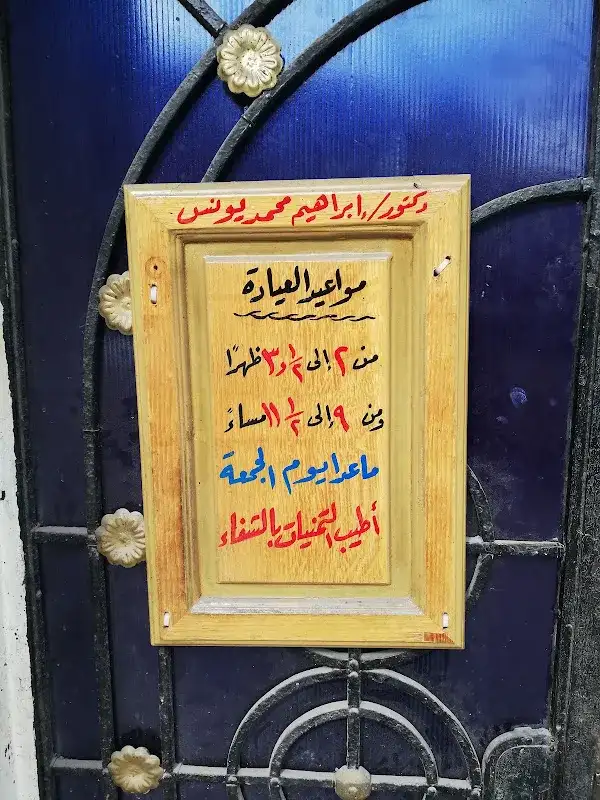 دكتور/إبراهيم محمد يونس
مواعيد العيادة
من ٢ إلى ١/٢ و٣ ظهرًا
ومن ٩ إلى ١/٢ ١١ مساءً
ماعدا يوم الجمعة
أطيب التمنيات بالشفاء